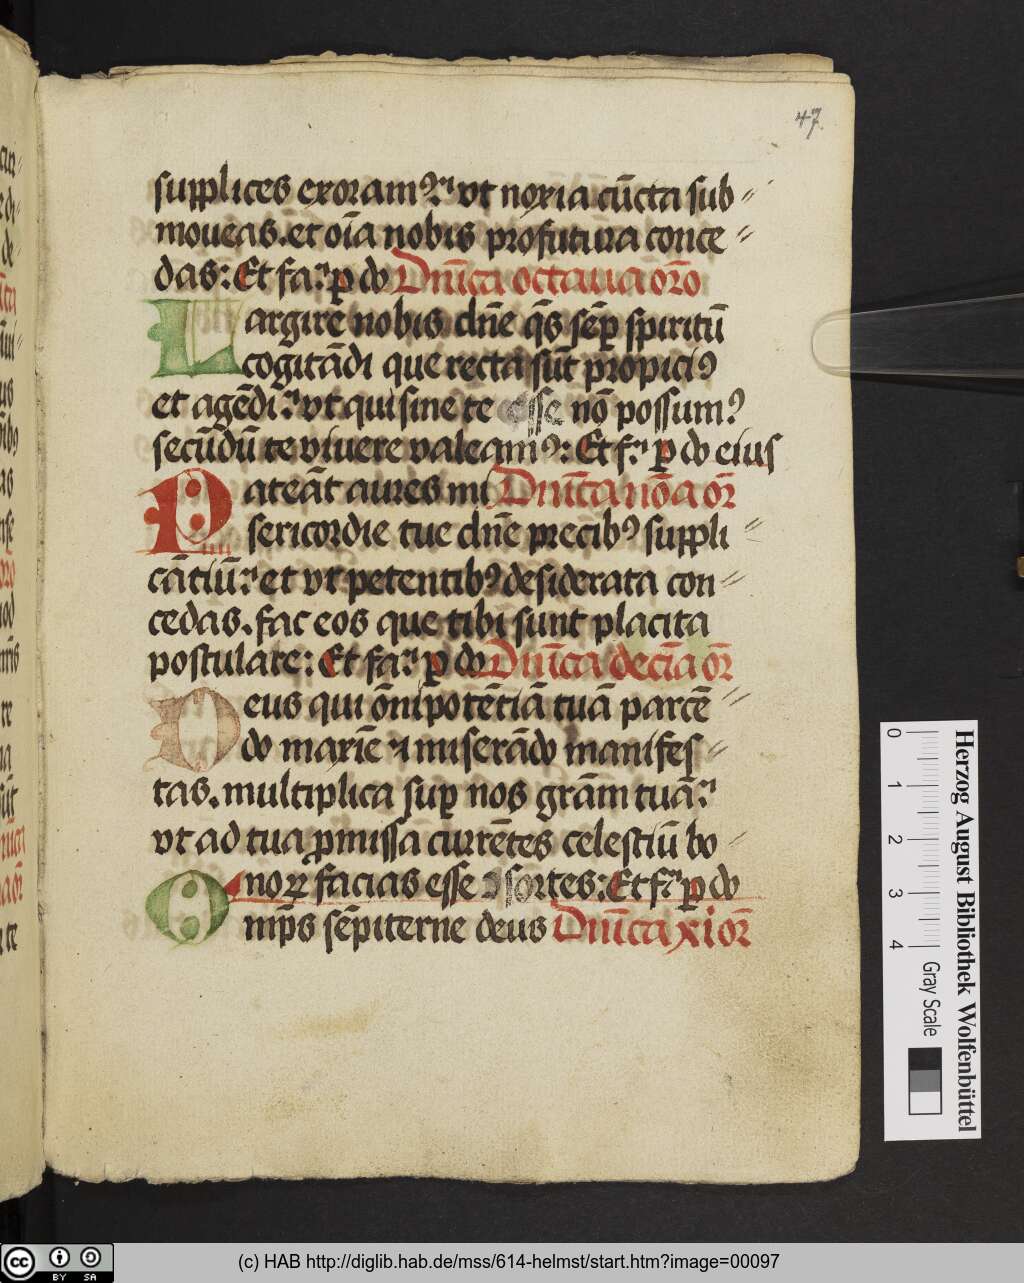 47.
supplices exoramꝰ: vt noxia cūcta sub〃
moueas. et oīa nobis profutura conce〃
das: Et fa: p do Dnīca octaua oro
Largire nobis dn̄e q̄s semꝑ spiritū
cogitādi que recta sūt propiciꝰ
et agēdi: vt qui sine te esse nō possumꝰ
secūdū te viuere valeamꝰ: Et f: p do eius
Pateāt aures mi Dnīca nōa or̄
sericordie tue dn̄e precibꝰ suppli〃
cātiū: et vt petentibꝰ desiderata con〃
cedas. fac eos que tibi sunt placita
postulare: Et fa: p do Dnīca decīa or̄
Deus qui ōnipotētiā tuā parcē〃
do maxīe ⁊ miserādo manifes〃
tas. multiplica suꝑ nos grām tuā:
vt ad tua ꝓmissa currētes celestiū bo〃
noꝝ facias esse ꝯsortes: Et f: p do
Omps sēpiterne deus Dnīca xi or̄
0 1 2 3 4
Gray Scale
Herzog August Bibliothek Wolfenbüttel
cc BY SA
(c) HAB http://diglib.hab.de/mss/614-helmst/start.htm?image=00097